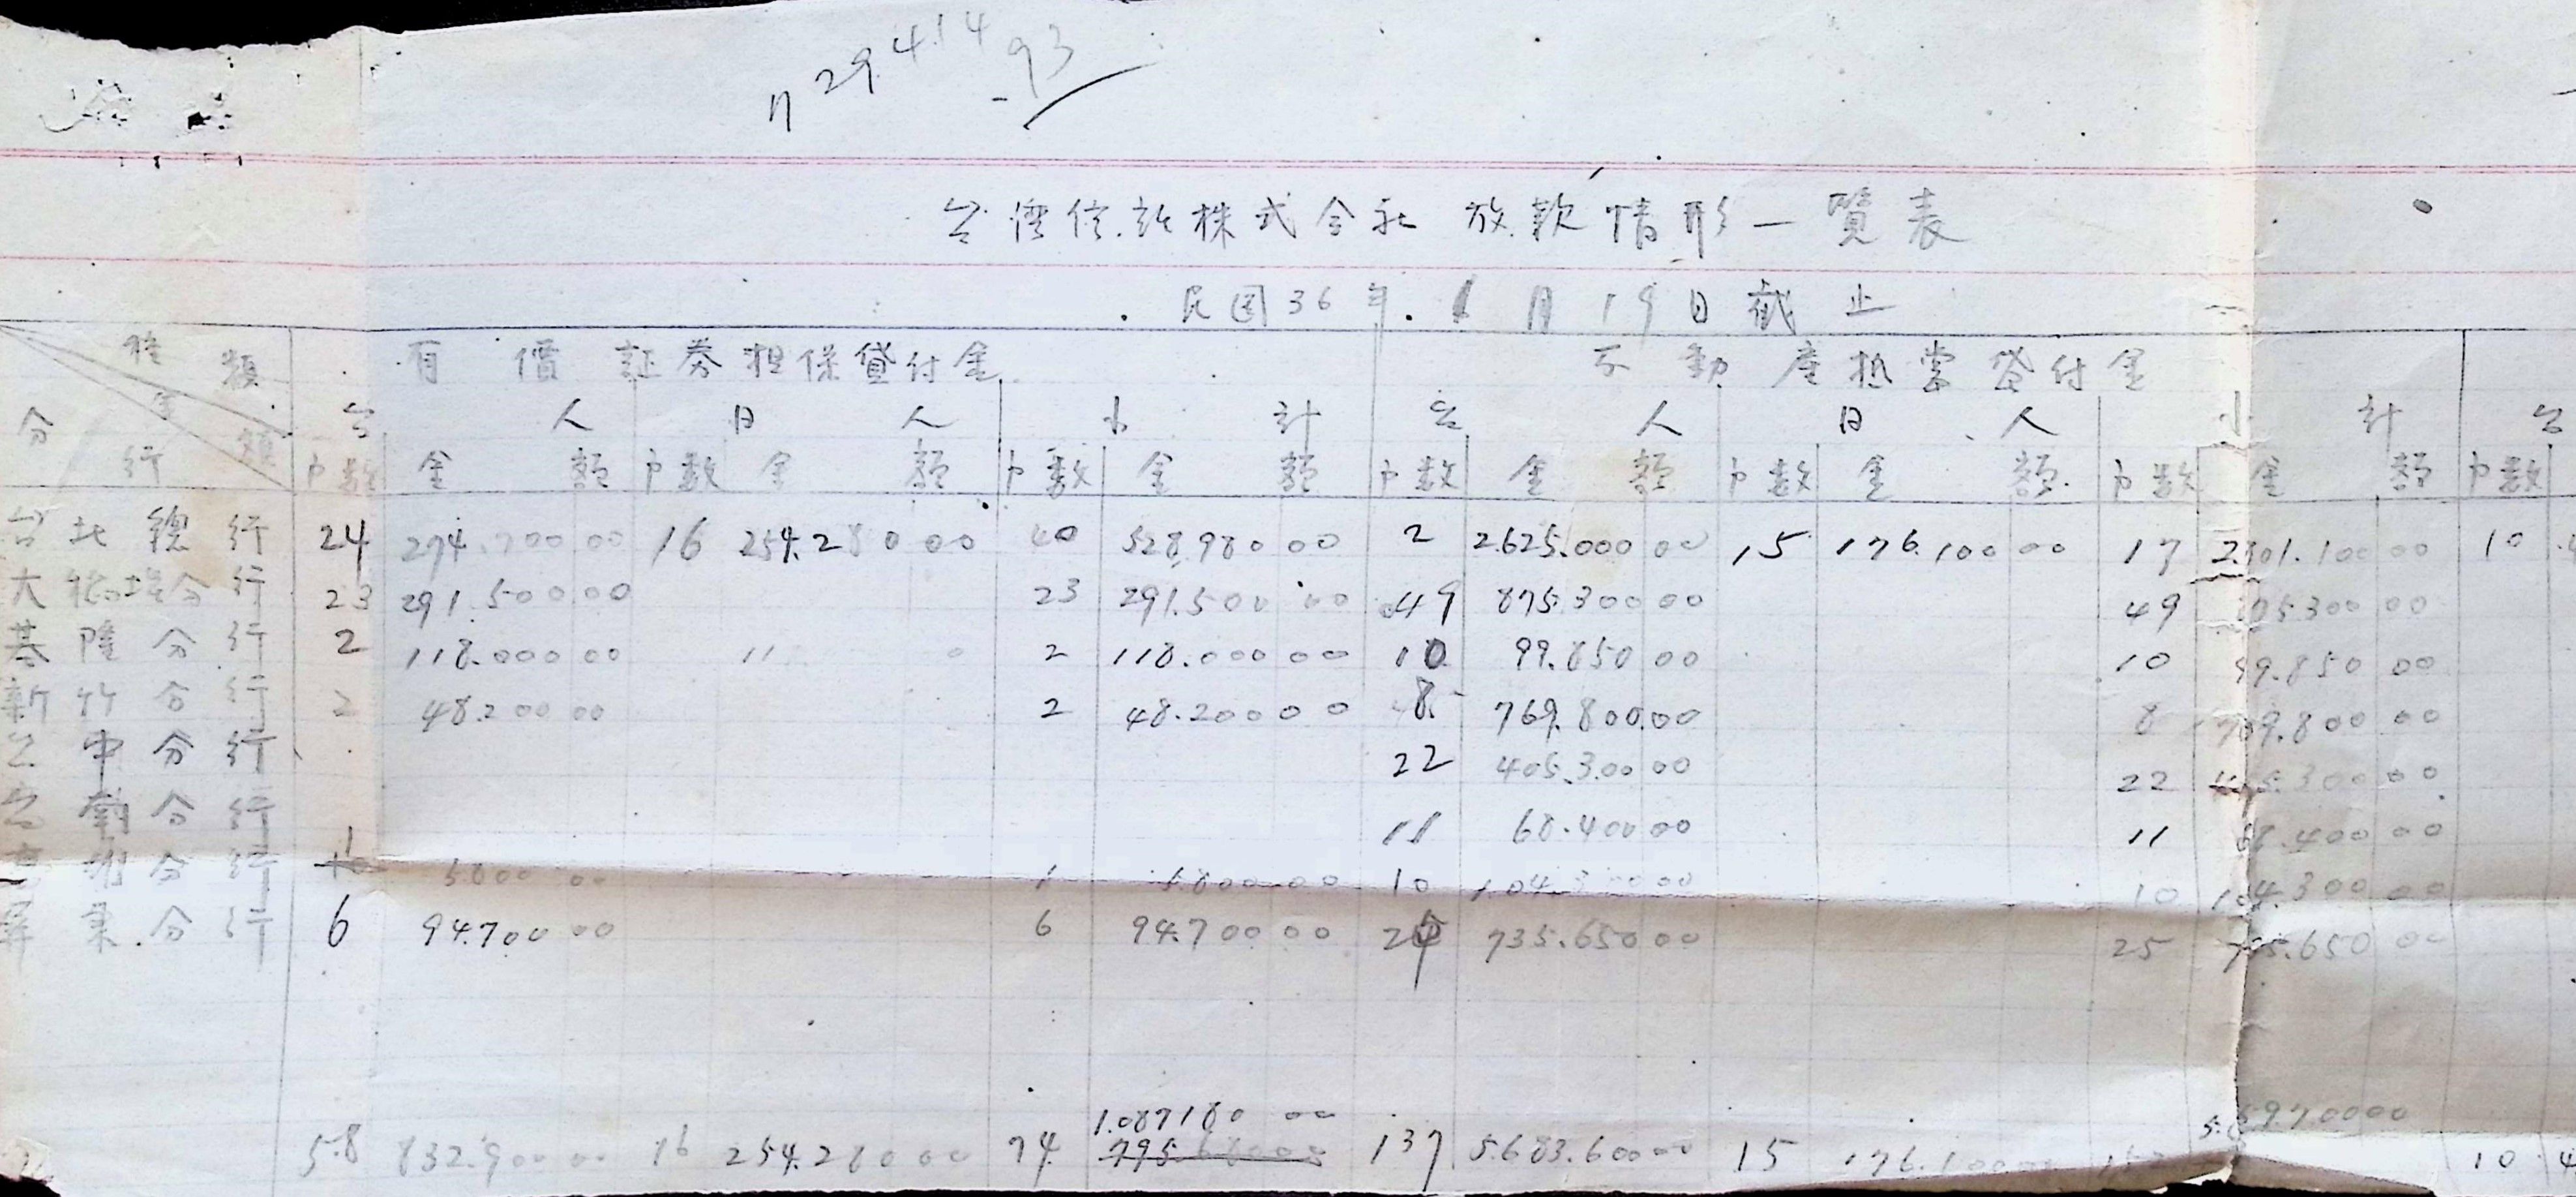 29414
-93
台湾信託株式会社 放款情形一覽表
民国36年.1月19日截止
種類 有價証券担保貸付金 不動産担當貸付金
金額 台人 日人 小計 台人 日人 小計 台
分行 戸数 金額 戸数 金額 戸数 金額 戸数 金額 戸数 金額 戸数 金額 戸数
台北總行 24 274.700 00 16 254.280 00 40 528.980 00 2 2.625.000 00 15 176.100 00 17 2.801.100 00 10
大稻埕分行 23 291.500 00 23 291.500 00 49 875.300 00 49 875.300 00
基隆分行 2 118.000 00 2 118.000 00 10 99.850 00 10 99.850 00
新竹分行 2 48.200 00 2 48.200 00 8 769.800.00 8 769.800 00
台中分行 22 405.300 00 22 405.300 00
台南分行 11 68.400 00 11 68.400 00
高雄分行 1 5.800 00 1 5.800 00 10 104.300 00 10 104.300 00
屏東分行 6 94.700 00 6 94.700 00 735.650 00 25 735.650 00
1.087180 00 5.859.700 00
58 832.900 00 16 254.280 00 74 137 5.683.600 00 15 176.100 00 10